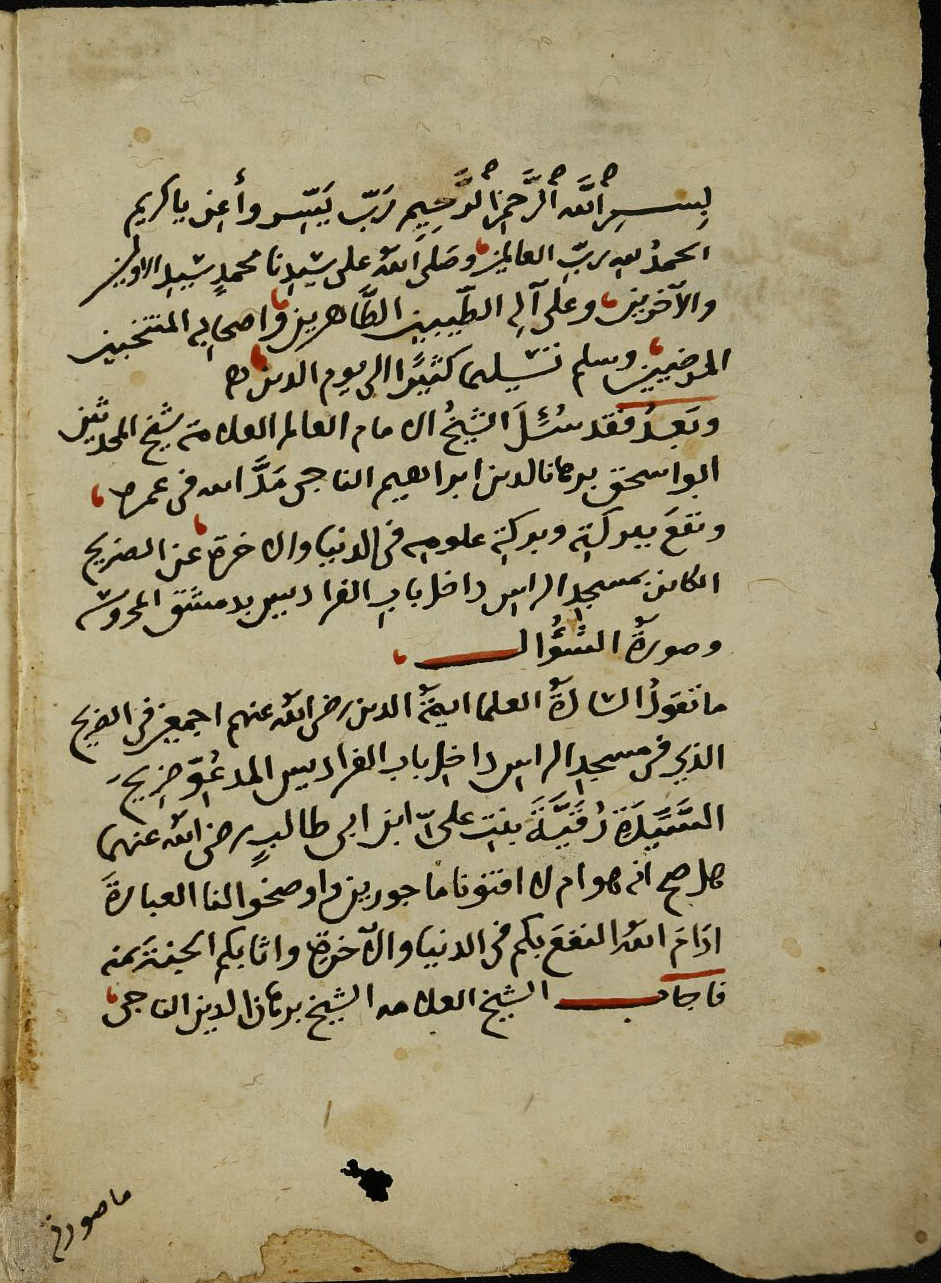 بِسـمِ اللَّه الرَّحمن الرَّحِيمِ رَبّ يَسّر وأَعِن يا كريم
الحمدُ لله ربّ العالمين وصَلى اللّه على سَيدِنا محمدٍ سَيدِ الاولين
والآخرين وعلى آلِه الطّيبين الطَّاهِرين واصحابِه المنتخبين
المرضيين وسلم تسليما كثيرًا الى يوم الدين
وبَعدُ فقد سُئِلَ الشيخُ الامام العالم العلامة شيخ المحدثين
ابو اسحق برهان الدين ابراهيم الناجى مَدَّ الله فى عمره
ونفعَ ببركته وبركة علومه فى الدنيا والاخرة عن الضريح
الكاين بمسجد الراس داخل باب الفراديس بدمشق المحروسة
وصورةُ السُّؤال
ما تقولُ السادةُ العلما ايمةُ الدين رضى اللّه عنهم اجمعين فى الضريح
الذي فى مسجد الراس داخل باب الفراديس المدعُوّ ضريحَ
السَّيِّدَةِ رُقَيَّةَ بنت على ابن ابى طالبٍ رضى اللّه عنهما
هل صح انه هو ام لا افتونا ماجورين واوضحوا لنا العبارةَ
ادَامَ اللّهُ النفعَ بكم فى الدنيا والآخرة واثابكم الجنةَ بمنه
فاجاب الشيخ العلامه الشيخ برهان الدين الناجى
ما صورة